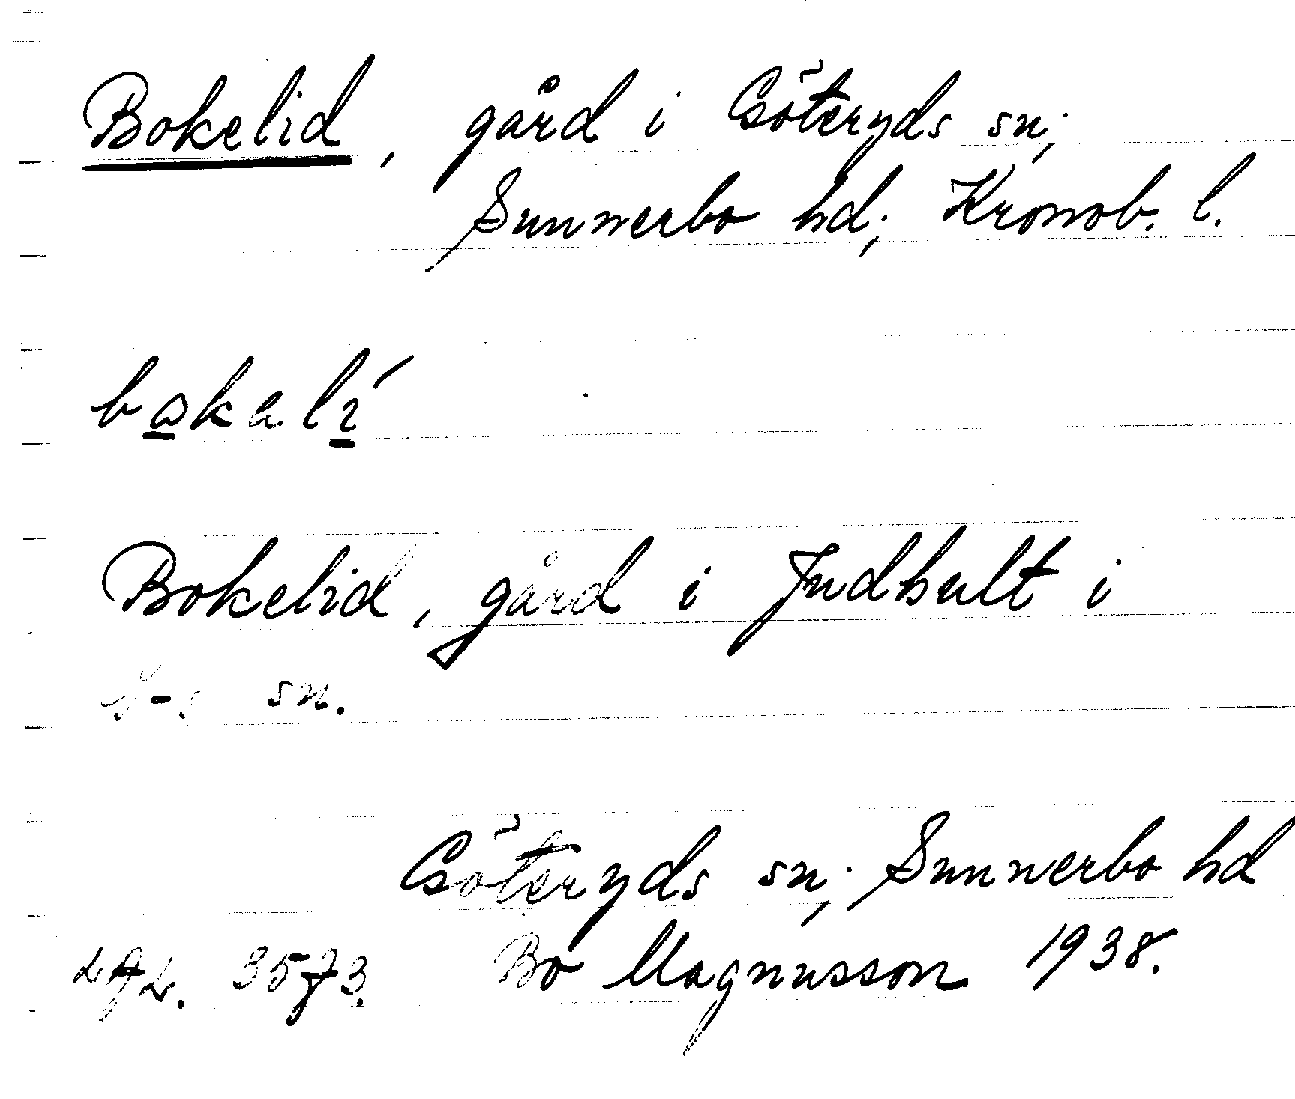 Bokelid, gård i Göteryds sn;
Sunnerbo hd; Kronob. l.
bokalí
Bokelid, gård i Judhult i
G-s sn.
Göteryds sn; Sunnerbo hd
3573. Bo Magnusson 1938.